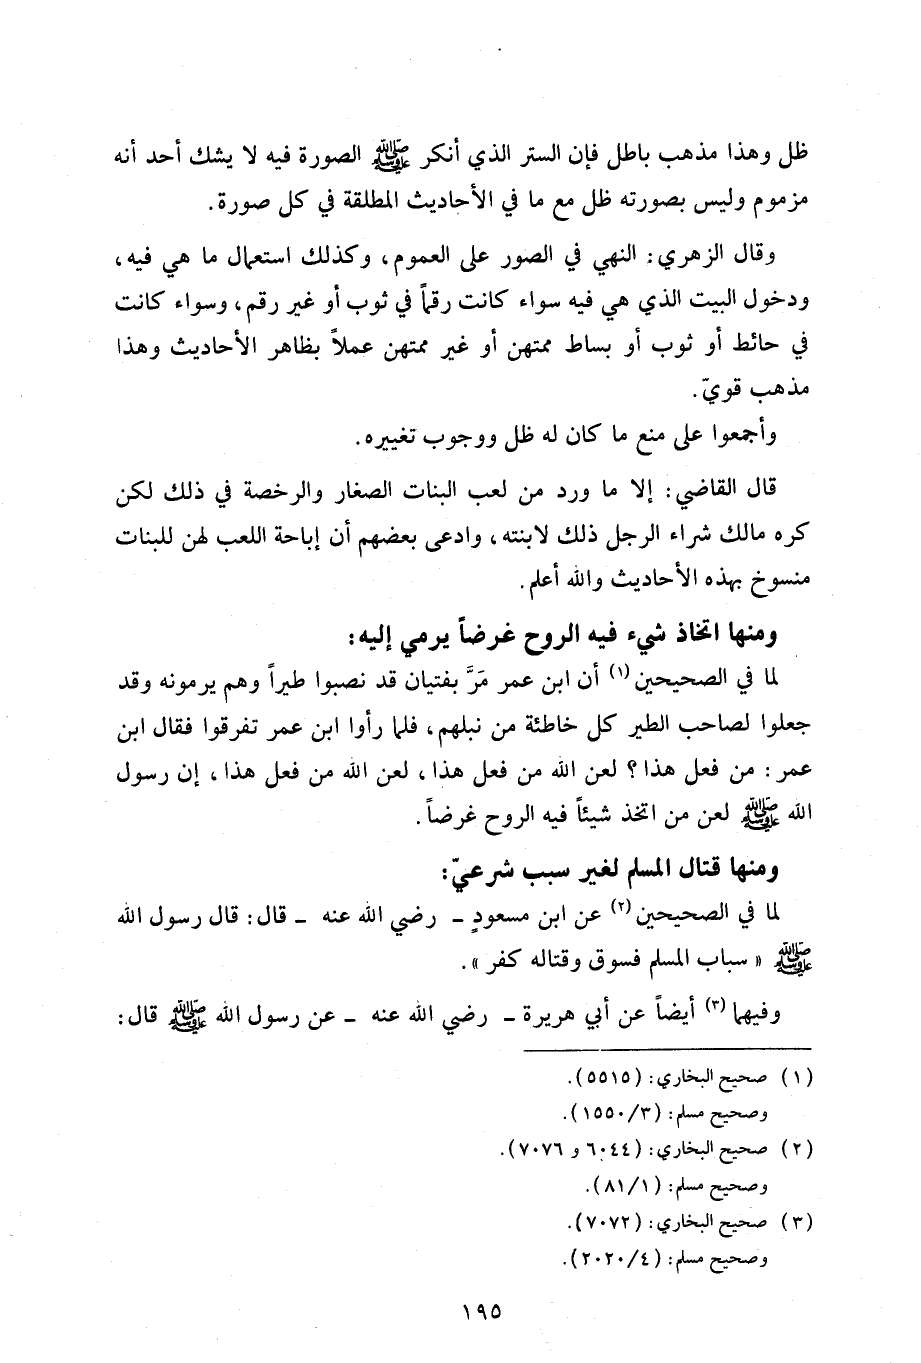 ظل وهذا مذهب باطل فإن الستر الذي أنكر ﷺ الصورة فيه لا يشك أحد أنه
مزموم وليس بصورته ظل مع ما في الأحاديث المطلقة في كل صورة.
وقال الزهري: النهي في الصور على العموم، وكذلك استعمال ما هي فيه،
ودخول البيت الذي هي فيه سواء كانت رقماً في ثوب أو غير رقم، وسواء كانت
في حائط أو ثوب أو بساط ممتهن أو غير ممتهن عملاً بظاهر الأحاديث وهذا
مذهب قويّ.
وأجمعوا على منع ما كان له ظل ووجوب تغييره.
قال القاضي: إلا ما ورد من لعب البنات الصغار والرخصة في ذلك لكن
كره مالك شراء الرجل ذلك لابنته، وادعى بعضهم أن إباحة اللعب لهن للبنات
منسوخ بهذه الأحاديث والله أعلم.
ومنها اتخاذ شيء فيه الروح غرضاً يرمي إليه:
لما في الصحيحين (١) أن ابن عمر مَرَّ بفتيان قد نصبوا طيراً وهم يرمونه وقد
جعلوا لصاحب الطير كل خاطئة من نبلهم، فلما رأوا ابن عمر تفرقوا فقال ابن
عمر: من فعل هذا؟ لعن الله من فعل هذا، لعن الله من فعل هذا، إن رسول
الله ﷺ لعن من اتخذ شيئاً فيه الروح غرضاً.
ومنها قتال المسلم لغير سبب شرعيّ:
لما في الصحيحين (٢) عن ابن مسعودٍ ـ رضي الله عنه ـ قال: قال رسول الله
ﷺ «سباب المسلم فسوق وقتاله كفر».
وفيهما (٣) أيضاً عن أبي هريرة ـ رضي الله عنه ـ عن رسول الله ﷺ قال:
(١) صحيح البخاري: (٥٥١٥).
وصحيح مسلم: (١٥٥٠/٣).
(٢) صحيح البخاري: (٦٠٤٤ و ٧٠٧٦).
وصحيح مسلم: (٨١/١).
(٣) صحيح البخاري: (٧٠٧٢).
وصحيح مسلم: (٢٠٢٠/٤).
١٩٥